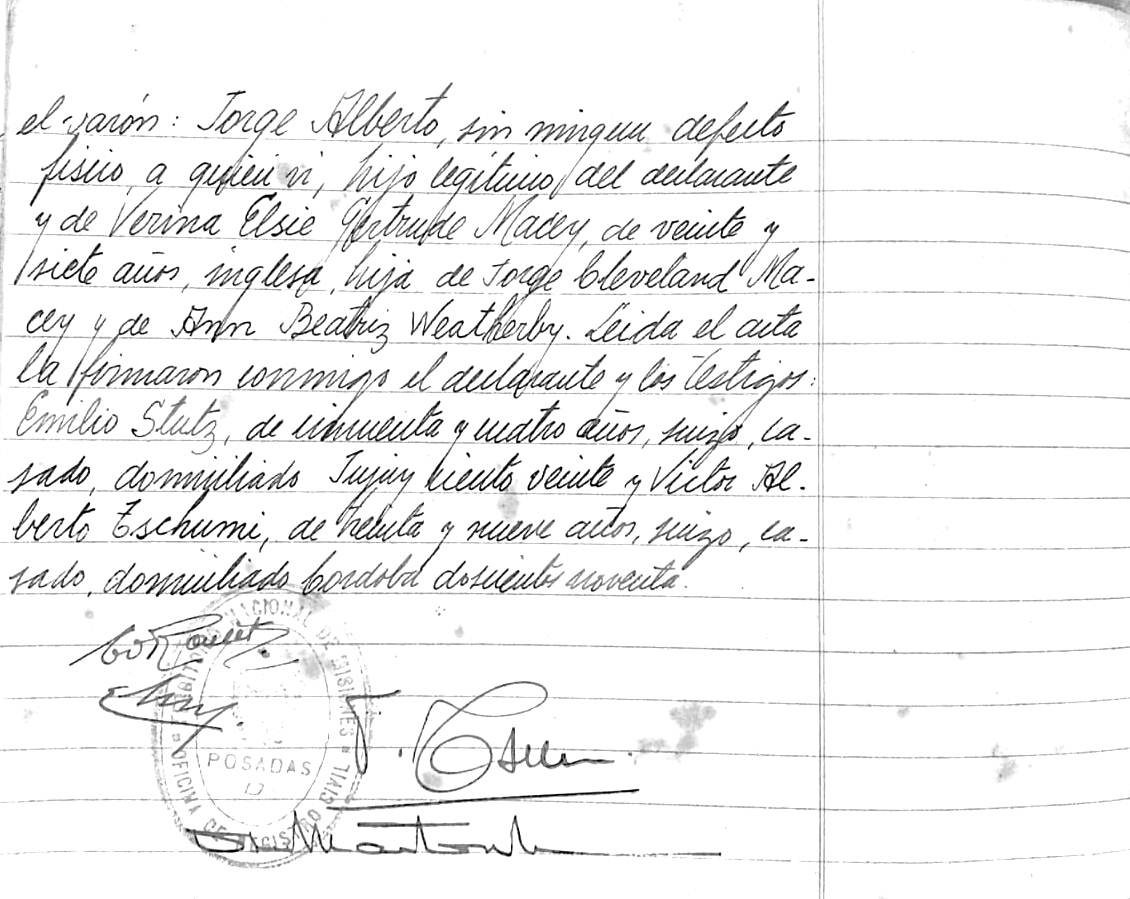 el varón: Jorge Alberto, sin ningun defecto
fisico, a quien vi, hijo legitimo del declarante
y de Verina Elsie Gertrude Macey, de veinte y
siete años, inglesa, hija de Jorge Cleveland Ma-
cey y de Ann Beatriz Weatherby. Leida el acta
la firmaron conmigo el declarante y los testigos:
Emilio Stutz, de cincuenta y cuatro años, suizo, ca-
sado, domiciliado Jujuy ciento veinte y Victor Al-
berto Tschumi, de treinta y nueve años, suizo, ca-
sado, domiciliado Cordoba doscientos noventa.
NACIONAL DE MISIONES
POSADAS
OFICINA DE REGISTRO CIVIL